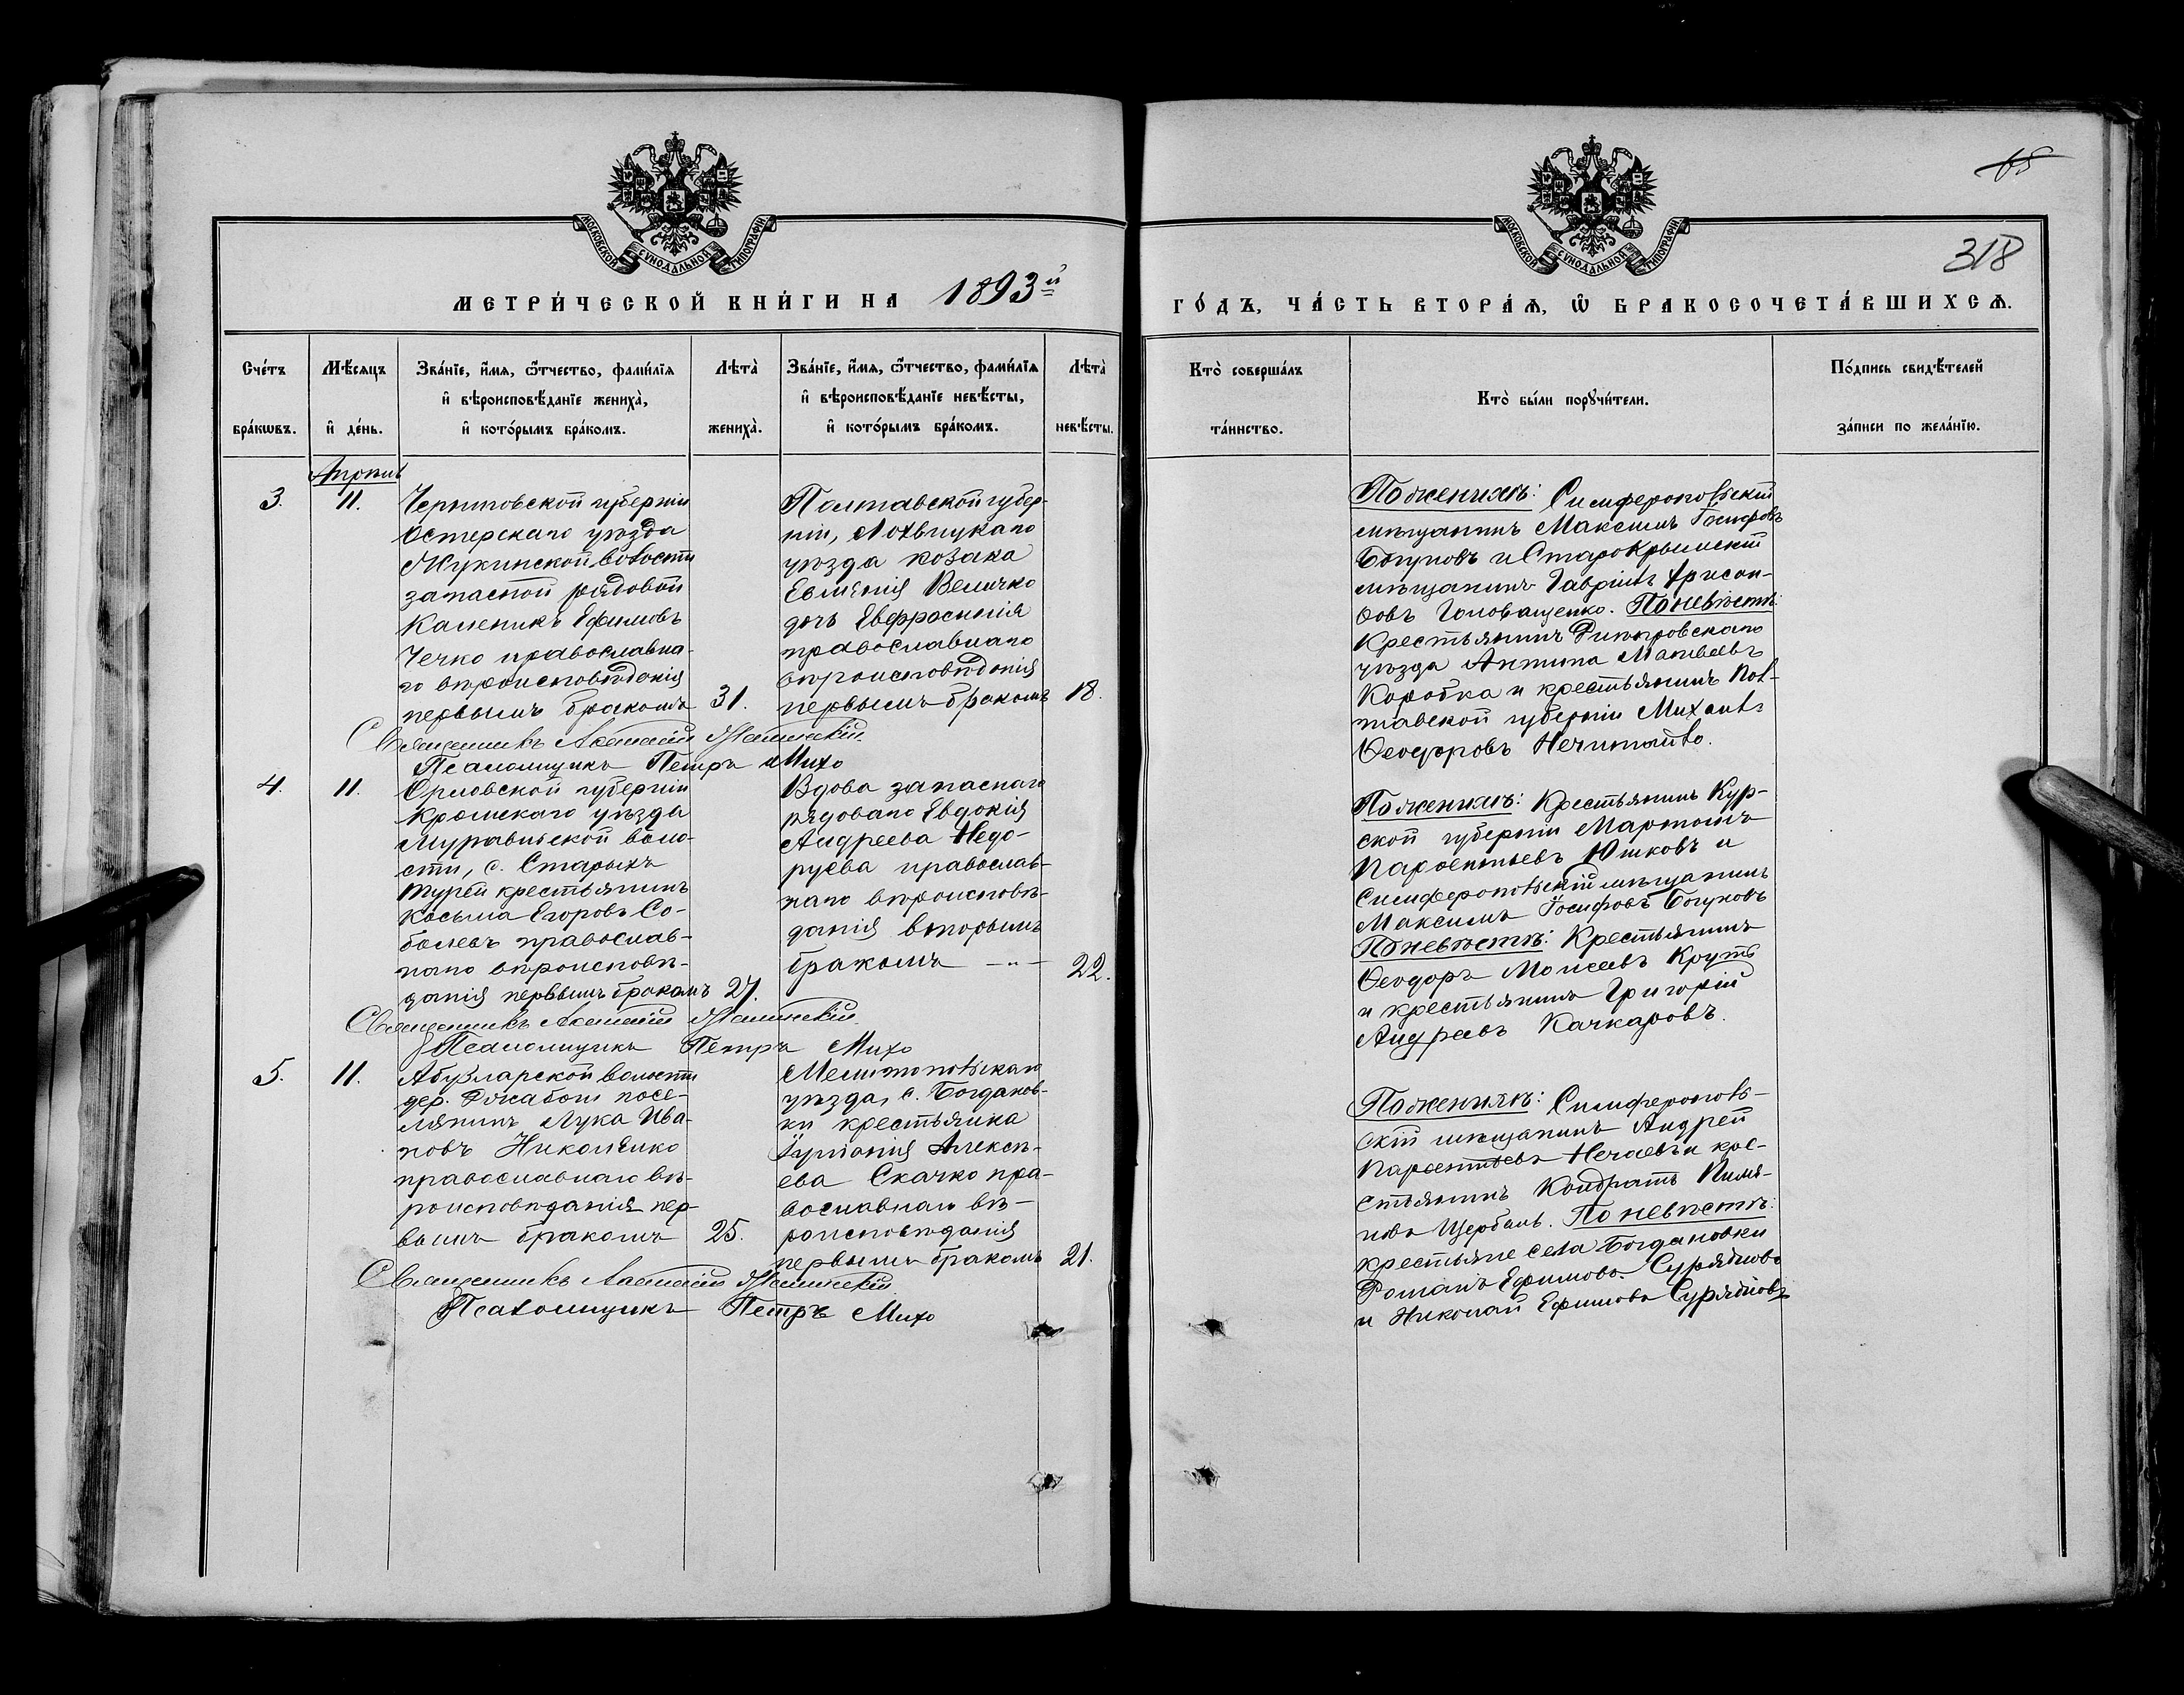 15
318
МОСКОВСКОЙ СУНОДАЛЬНОЙ ТИПОГРАФІИ
МОСКОВСКОЙ СУНОДАЛЬНОЙ ТИПОГРАФІИ
МЕТРИ́ЧЕСКОЙ КНИ́ГИ НА 1893й
ГО́ДЪ, ЧА́СТЬ ВТОРА́Ѧ, Ѽ БРАКОСОЧЕТА́ВШИХСѦ.
Сче́тъ бра́кѡвъ.
Мѣ́сяцъ и҆ де́нь.
Зва́нїе, и҆́мя, ѻ҆́тчество, фами́лїя
и҆ вѣроисповѣ́данїе жениха̀,
и҆ кото́рымъ бра́комъ.
Лѣта̀ жениха̀.
Зва́нїе, и҆́мя, ѻ҆́тчество, фами́лїя
и҆ вѣроисповѣ́данїе невѣ́сты,
и҆ кото́рымъ бра́комъ.
Лѣта̀ невѣ́сты.
Кто̀ соверша́лъ та́инство.
Кто̀ бы́ли порꙋчи́тели.
По́дпись свидѣ́телей за́писи по жела́нїю.
Апрѣль
3.
11.
Черниговской губерніи
Остерскаго уѣзда
Жукинской волости
запасной рядовой
Каленикъ Ефимовъ
Чечко православна-
го вѣроисповѣданія
первымъ бракомъ
31.
Полтавской губер-
ніи, Лохвицкаго
уѣзда козака
Евменія Величко
дочь Евфросинія
православнаго
вѣроисповѣданія
первымъ бракомъ
18.
Священникъ
Псаломщикъ Петръ Михо
По женихѣ: Симферопольскій
мѣщанинъ Максимъ Іосифовъ
Богуновъ и Старокрымскій
мѣщанинъ Гавріилъ
Головащенко. По невѣстѣ:
Крестьянинъ
уѣзда Антипа Матвеевъ
Коробка и крестьянинъ Пол-
тавской губерніи Михаилъ
Ѳеодоровъ Нечипайло.
4.
11.
Орловской губерніи
Кромскаго уѣзда
Муравльской воло-
сти, с. Старыхъ
Турей крестьянинъ
Косьма Егоровъ Со-
болевъ православ-
наго вѣроисповѣ-
данія первымъ бракомъ
27.
Вдова запаснаго
рядоваго Евдокія
Андреева Недо-
руева православ-
наго вѣроисповѣ-
данія вторымъ
бракомъ
22.
Священникъ
Псаломщикъ Петръ Михо
По женихѣ: Крестьянинъ Кур-
ской губерніи Мартынъ
Парѳентьевъ Юшковъ и
Симферопольскій мѣщанинъ
Максимъ Іосифовъ Богуновъ
По невѣстѣ: Крестьянинъ
Ѳеодоръ Моисеевъ Круть
и крестьянинъ Григорій
Андреевъ Качкаровъ.
5.
11.
Абузларской волости
дер. посе-
лянинъ Лука Ива-
новъ Николенко
православнаго вѣ-
роисповѣданія пер-
вымъ бракомъ
25.
Мелитопольскаго
уѣзда, с. Богданов-
ки крестьянка
Іуліанія Алексѣ-
ева Скачко пра-
вославнаго вѣ-
роисповѣданія
первымъ бракомъ
21.
Священникъ
Псаломщикъ Петръ Михо
По женихѣ: Симферополь-
скій мѣщанинъ Андрей
Парѳентьевъ Нечаевъ и кре-
стьянинъ Кондратъ Пиме-
новъ Щербань. По невѣстѣ:
крестьяне села Богдановки
Романъ Ефимовъ Сурядновъ
и Николай Ефимовъ Сурядновъ